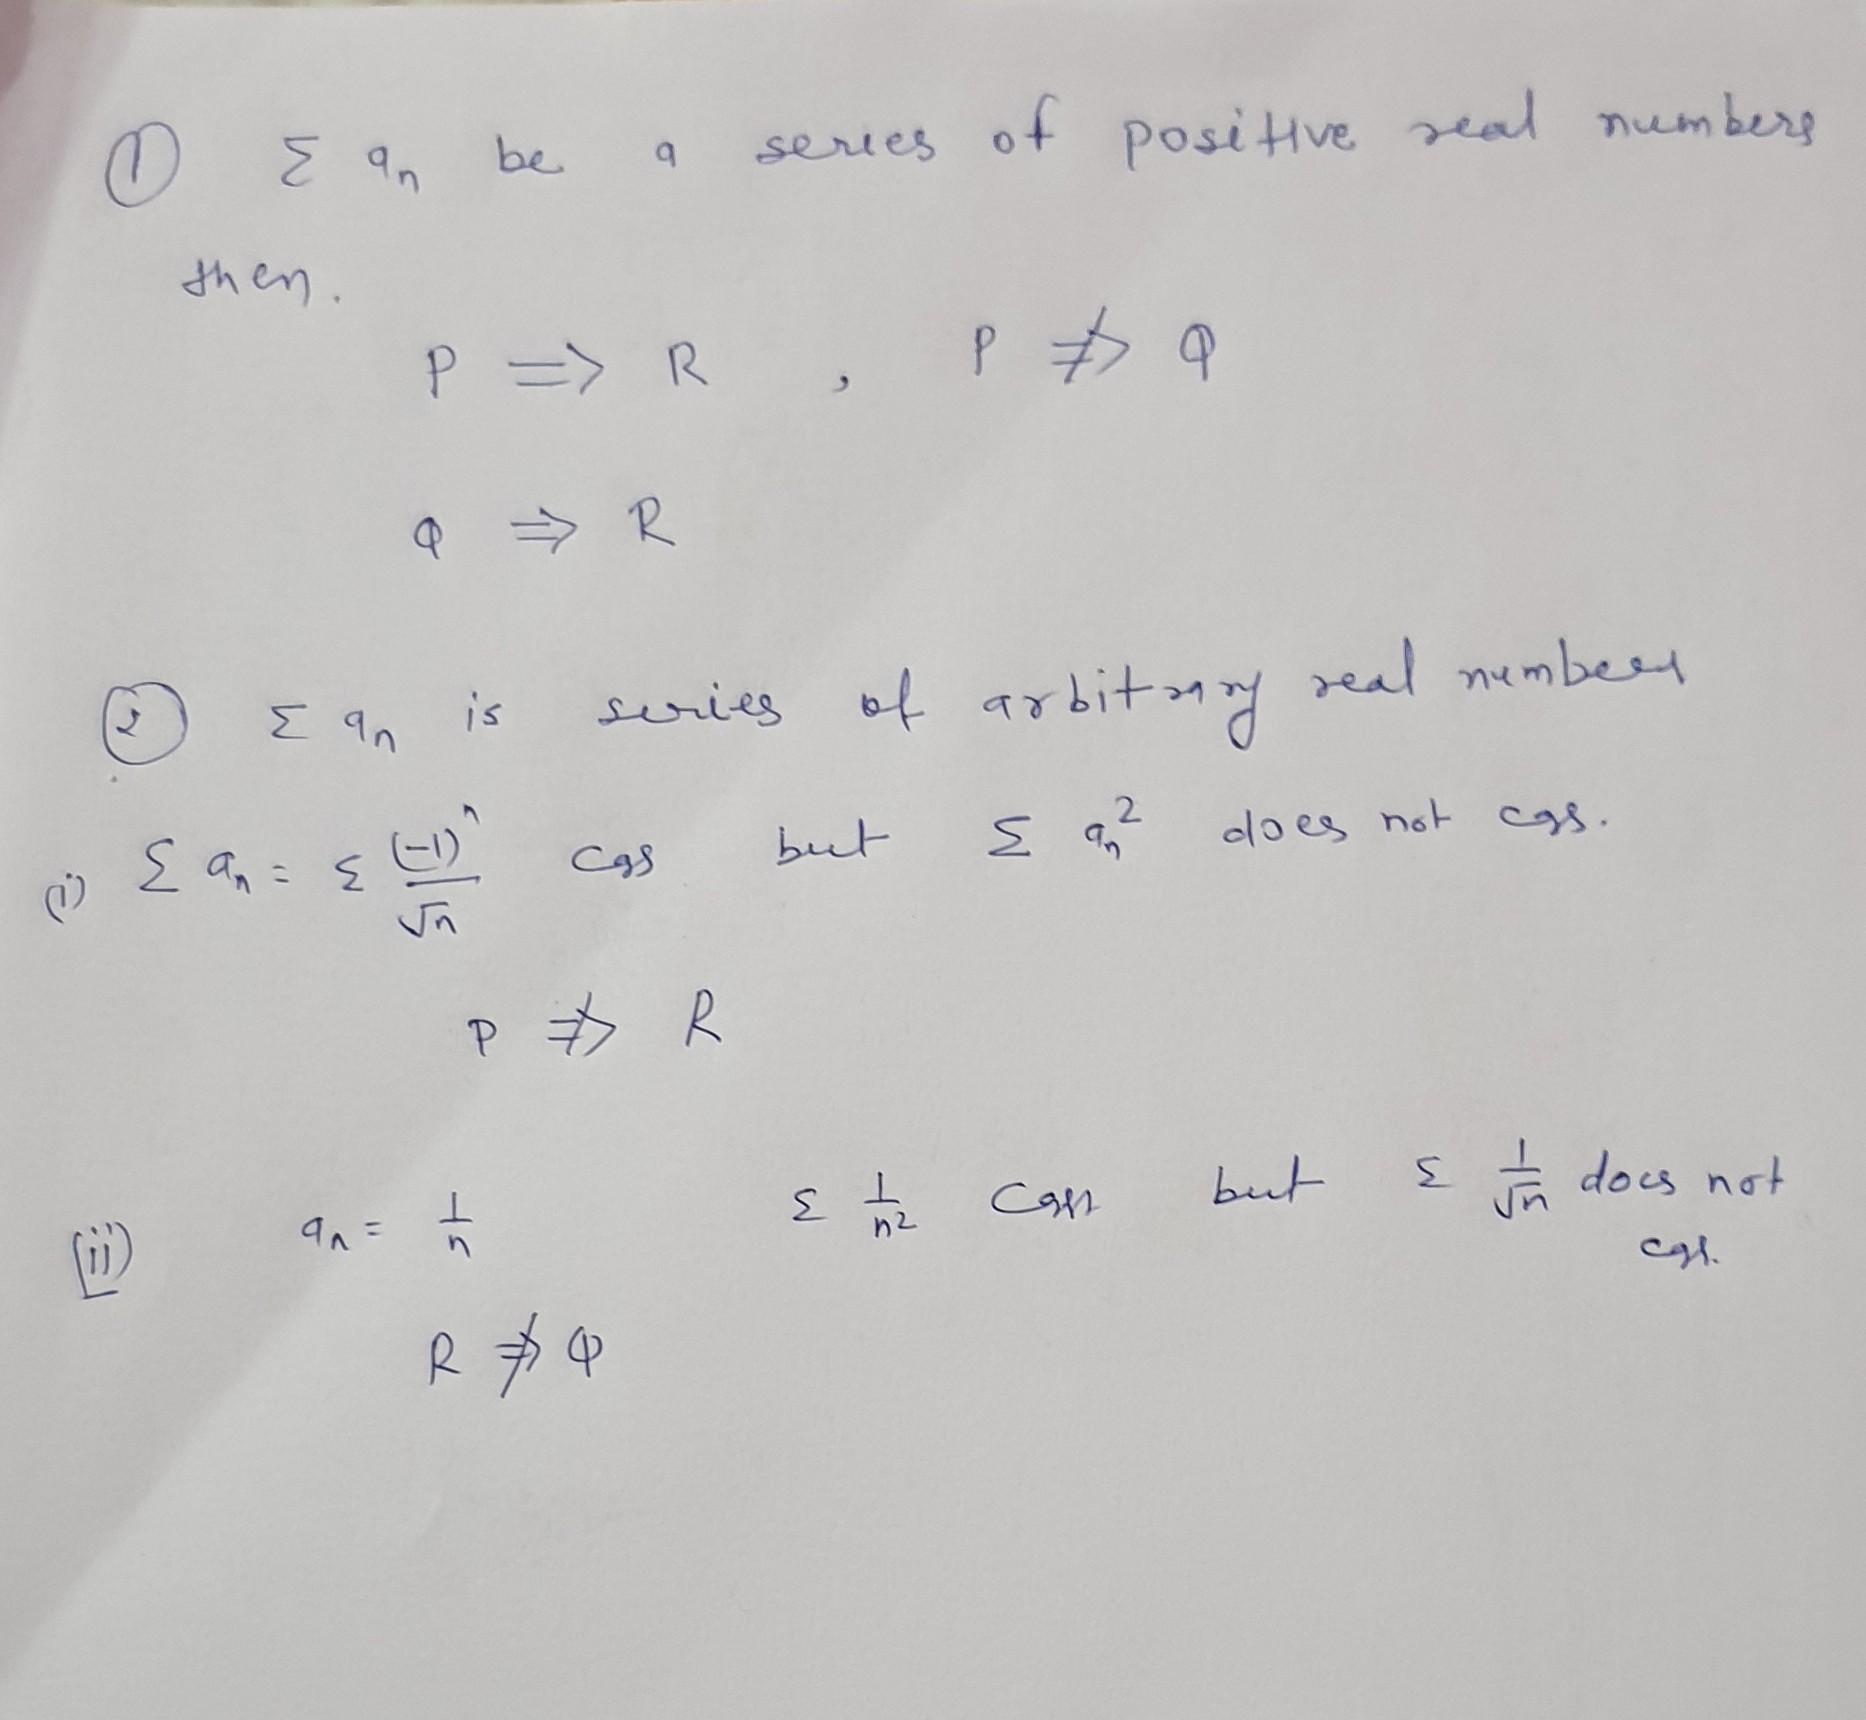 ① Σ aₙ be a series of positive real numbers
then.
P => R , P ≠> Q
Q => R
② Σ aₙ is series of arbitrary real numbers
(i) Σ aₙ = Σ (-1)ⁿ/√n cgs but Σ aₙ² does not cgs.
P ≠> R
(ii) aₙ = 1/n Σ 1/n² cgs but Σ 1/√n does not
cgs.
R ≠> Q